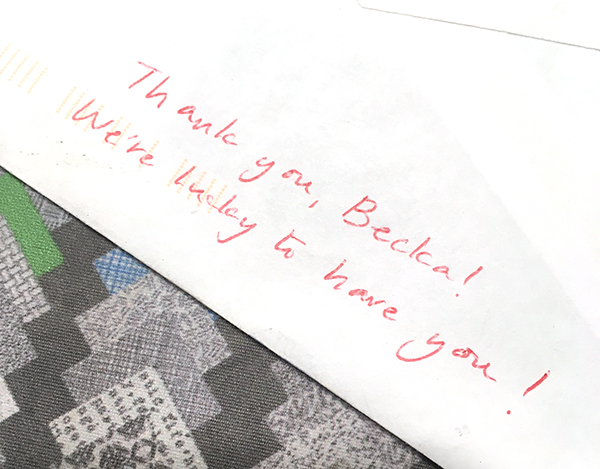 Thank you, Becka!
We're lucky to have you!